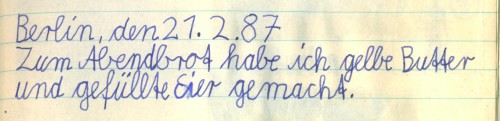 Berlin, den 21. 2. 87
Zum Abendbrot habe ich gelbe Butter
und gefüllte Eier gemacht.